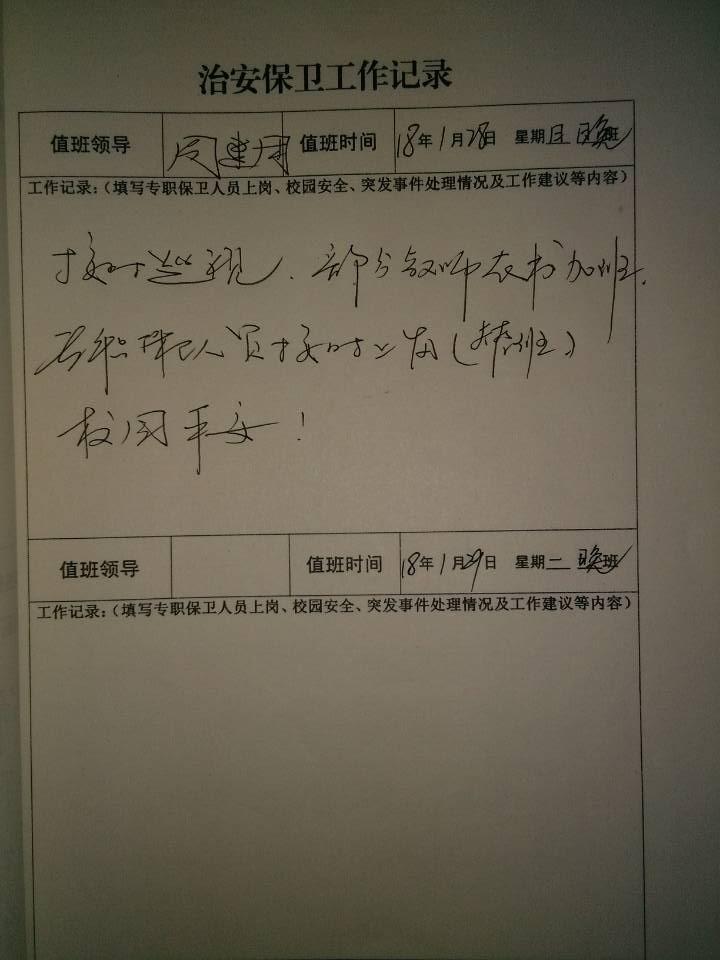 治安保卫工作记录
值班领导 周建国 值班时间 18年1月28日 星期日 晚班
工作记录:(填写专职保卫人员上岗、校园安全、突发事件处理情况及工作建议等内容)
按时巡视、部分教师在校加班.
专职保卫人员按时上岗(替班)
校园平安!
值班领导 值班时间 18年1月29日 星期二 晚班
工作记录:(填写专职保卫人员上岗、校园安全、突发事件处理情况及工作建议等内容)